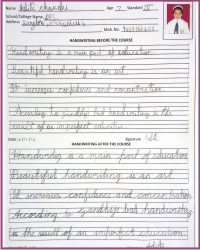 Name Age 7 Standard
School/College Name
Address
Mob. No.
HANDWRITING BEFORE THE COURSE
Handwriting is a main part of education.
Beautiful handwriting is an art
It increases confidence and concentration
According to gandhiji bad handwriting is the
result of an imperfect education
Date Signature
HANDWRITING AFTER THE COURSE
Handwriting is a main part of education
Beautiful handwriting is an art
It increases confidence and concentration
According to gandhiji bad handwriting
is the result of an imperfect education.